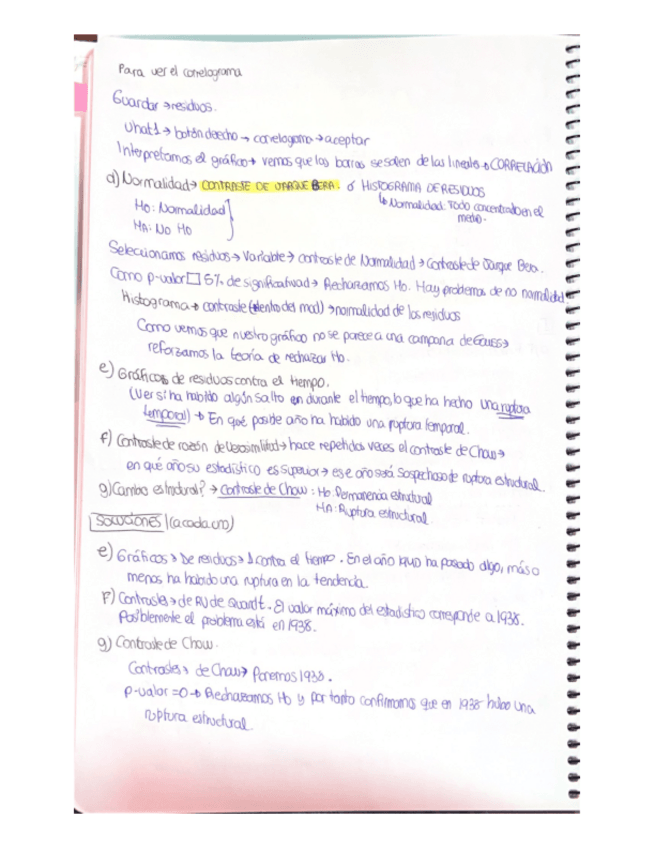 Para ver el correlograma
Guardar → residuos.
Uhat1 → botón derecho → correlograma → aceptar
Interpretamos el gráfico → vemos que las barras se salen de las líneas → CORRELACIÓN
d) Normalidad → CONTRASTE DE JARQUE BERA. ó HISTOGRAMA DE RESIDUOS
↳ Normalidad: Todo concentrado en el medio.
Ho: Normalidad
HA: No Ho
Seleccionamos residuos → Variable → contraste de Normalidad → Contraste de Jarque Bera.
Como p-valor □ 5% de significatividad → Rechazamos Ho. Hay problemas de no normalidad.
Histograma → contraste (dentro del mod) → normalidad de los residuos
Como vemos que nuestro gráfico no se parece a una campana de Gauss →
reforzamos la teoría de rechazar Ho.
e) Gráficos de residuos contra el tiempo.
(Ver si ha habido algún salto en durante el tiempo, lo que ha hecho una ruptura
temporal) → En qué posible año ha habido una ruptura temporal.
f) Contraste de razón de Verosimilitud → hace repetidas veces el contraste de Chow →
en qué año su estadístico es superior → ese año será sospechoso de ruptura estructural.
g) Cambio estructural? → Contraste de Chow : Ho: Permanencia estructural
HA: Ruptura estructural
SOLUCIONES (a cada uno)
e) Gráficos → De residuos → contra el tiempo. En el año ha pasado algo, más o
menos ha habido una ruptura en la tendencia.
F) Contrastes → de RV de Quandt. El valor máximo del estadístico corresponde a 1938.
Posiblemente el problema está en 1938.
g) Contraste de Chow.
Contrastes → de Chow → Ponemos 1938.
p-valor = 0 → Rechazamos Ho y por tanto confirmamos que en 1938 hubo una
ruptura estructural.